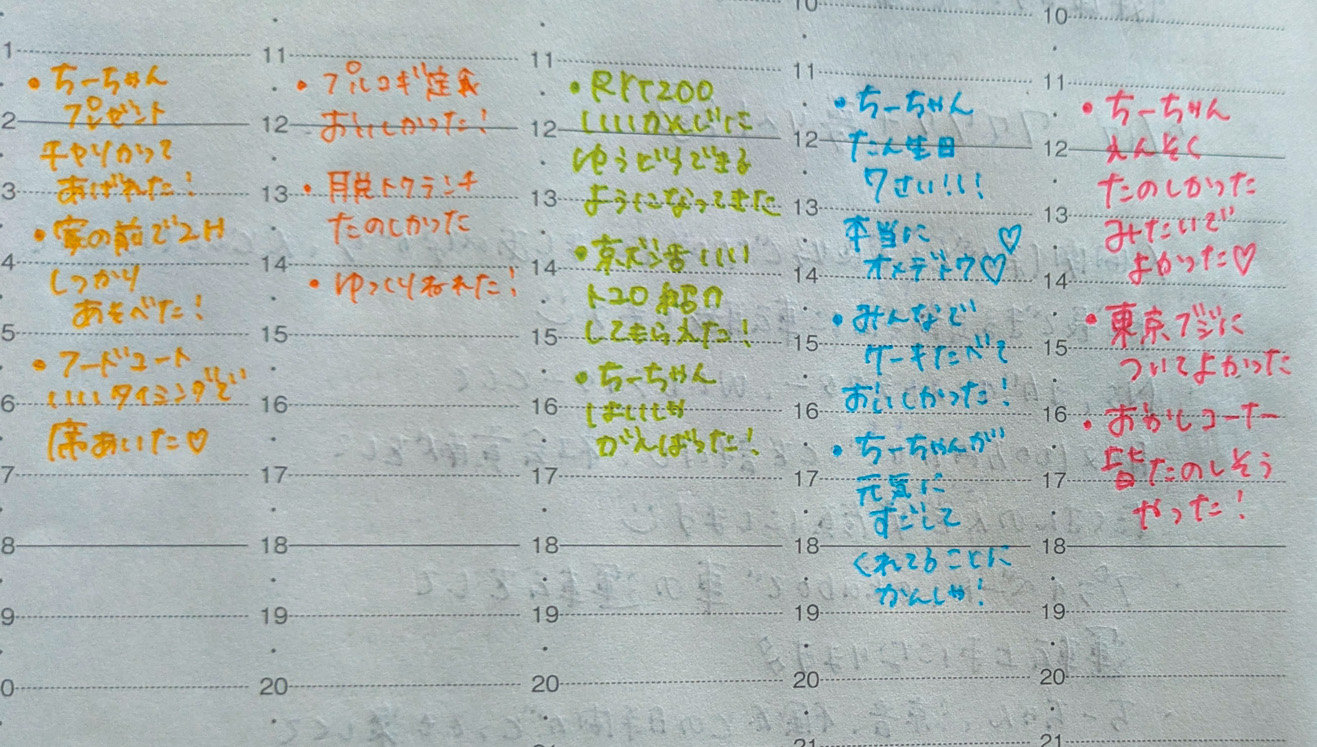 ・ちーちゃん
プレゼント
チャリかって
あげれた！
・家の前で2H
しっかり
あそべた！
・フードコート
いいタイミングで
席あいた♡
・プルコギ定食
おいしかった！
ランチ
たのしかった
・ゆっくりねれた！
いいかんじに
ゆうどうできる
ようになってきた
いい
トコロ
してもらえた！
・ちーちゃん
がんばった！
・ちーちゃん
たん生日
7さい！！！
本当に♡
オメデトウ♡
・みんなで
ケーキたべて
おいしかった！
・ちーちゃんが
元気に
すごして
くれてることに
かんしゃ！
・ちーちゃん
えんそく
たのしかった
みたいで
よかった♡
・東京ブジに
ついてよかった
・おかしコーナー
皆たのしそう
やった！
1
2
3
4
5
6
7
8
9
0
11
12
13
14
15
16
17
18
19
20
11
12
13
14
15
16
17
18
19
20
10
11
12
13
14
15
16
17
18
19
20
21
10
11
12
13
14
15
16
17
18
19
20
21